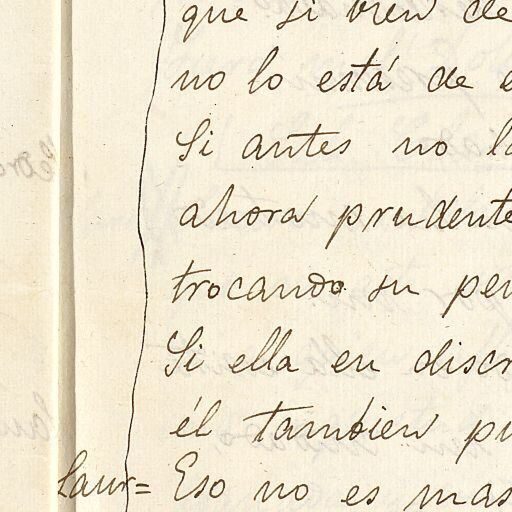 que si bien de
no lo está de
Si antes no
ahora prudente
trocando su
Si ella en discr
él tambien
Laur= Eso no es mas